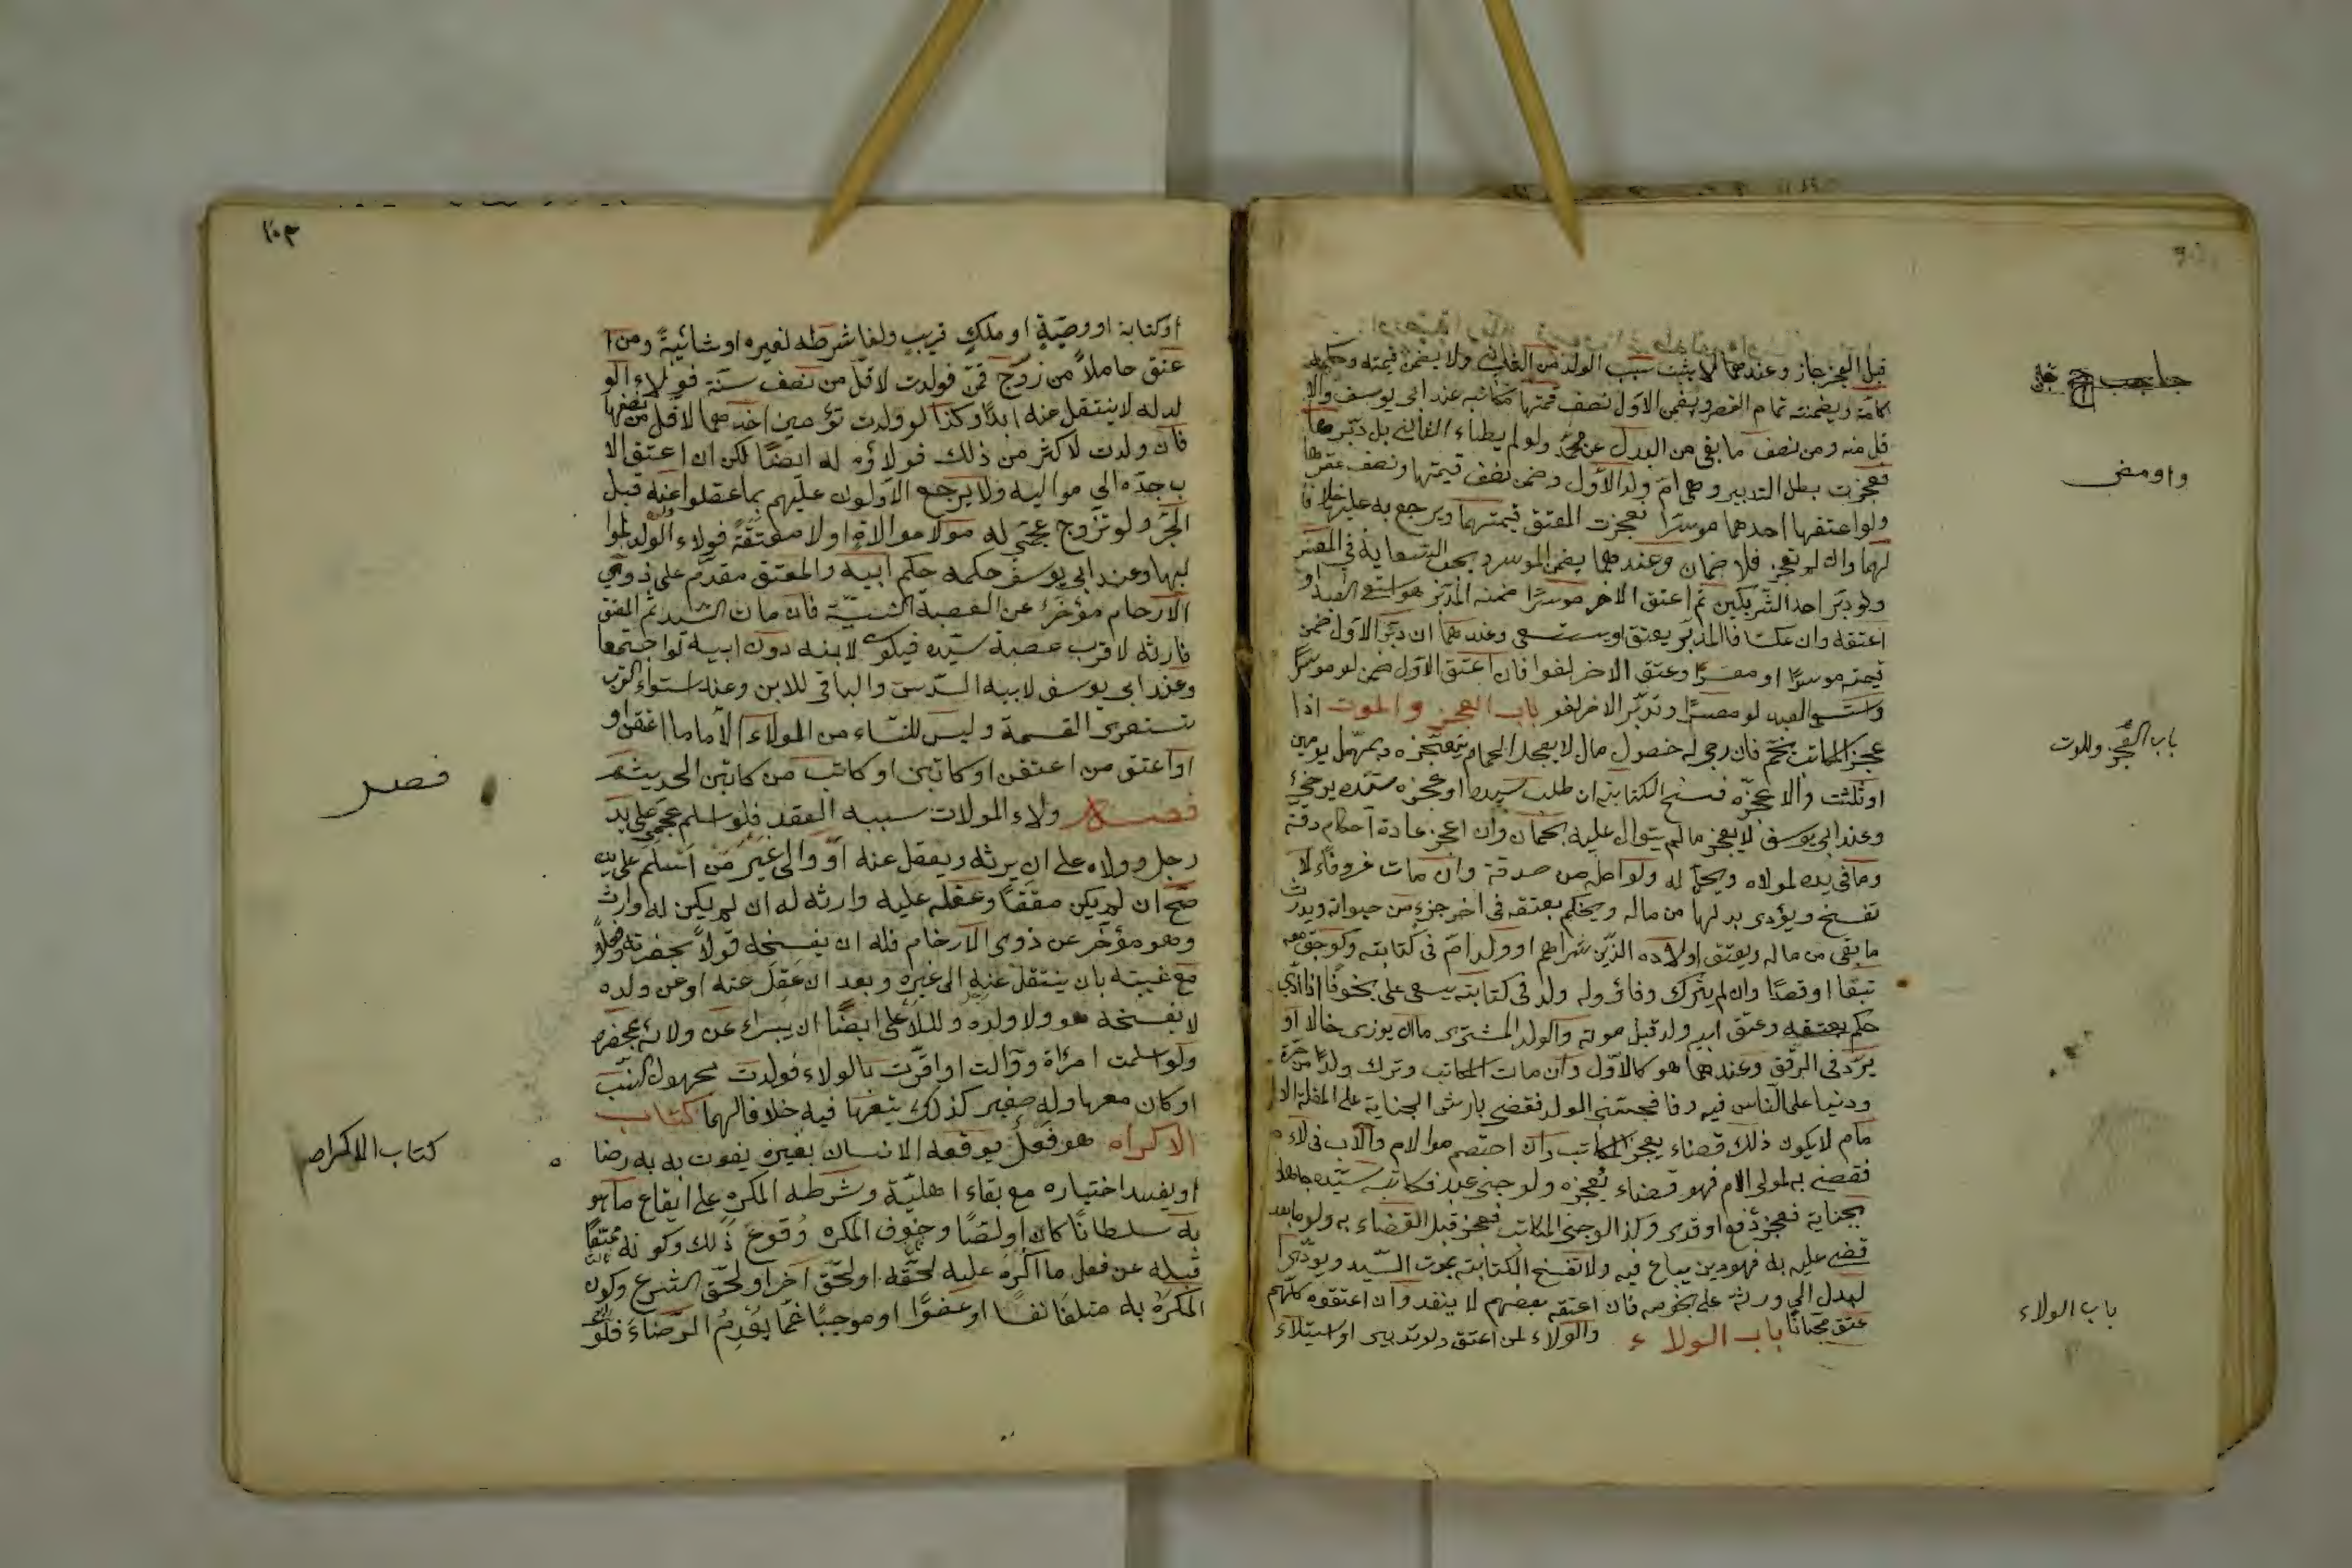 قبل العجز جاز وعندهما لا يثبت نسب الولد من الثاني ولا يضمن قيمته وحكمه
كامة ويضمنه تمام العقر ويضمن الاول نصف قيمتها مكاتبه عند ابي يوسف والا
قل منه ومن نصف ما بقي من البدل عن محمد ولو لم يطاء الثاني بل دبرها
فعجزت بطل التدبير وهي ام ولد الاول وضمن نصف قيمتها ونصف عقرها
ولو اعتقها احدهما موسرا فعجزت المعتق قيمتها ويرجع به عليها خلافا
لهما وان لم تعجز فلا ضمان وعندهما يضمن الموسر وبجب السعاية في المعسر
ولو دبر احد الشريكين ثم اعتق الاخر موسرا ضمنه المدبر او استسعى العبد او
اعتقه وان عكسا فالمدبر يعتق او يستسعى وعندهما ان دبر الاول ضمن
قيمته موسرا او معسرا وعتق الاخر لغوا فان اعتق الاول ضمن لو موسرا
واستسعى العبد لو معسرا وتدبير الاخر لغو باب العجز والموت اذا
عجز المكاتب بنجم فان رجي له حصول مال لا يعجل الحاكم بتعجيزه ويمهل يومين
او ثلثة والا عجزه فسخ الكتابة ان طلب سيده او عجزه سيده برضئ
وعند ابي يوسف لا يعجز ما لم يتوال عليه نجمان وان اعجز عادة احكام رقه
وما في يده لمولاه ويحل له ولو اصله من صدقة وان مات عن وفاء لا
تفسخ ويؤدى بدلها من ماله ويحكم بعتقه في اخر جزء من حيواته ويورث
ما بقي من ماله ويعتق اولاده الذين شراهم او ولد ام في كتابته وكوجق معه
تبعا او قصدا وان لم يترك وفاؤ وله ولد في كتابته يسعى على نجومه اذا ادي
حكم بعتقه وعتق ابيه ولد قبل موته والولد المشترى ما ان يوزى حالا او
يرد في الرق وعندهما هو كالاول وان مات المكاتب وترك ولدا من حرة
ودنيا على الناس فيه وفا فجنى الولد فقضى بارش الجناية على العاقلة الا
مام لا يكون ذلك قضاء بعجز المكاتب وان اختصم موالام والاب في لاء ه
فقضى به لمولى الام فهو قضاء بعجزه ولو جنى عبد فكاتبه سيده جاهلا
بجناية فعجز دفع او فدى وكذا لو جنى المكاتب فعجز قبل القضاء به ولو ما بعد
قضى عليه به فهو دين يباع فيه ولا تفسخ الكتابة بموت السيد ويودى ا
لبدل الى ورثه على نجومه فان اعتقه بعضهم لا ينفد وان اعتقوه كلهم
عتق مجانا باب الولاء والولاء لمن اعتق ولو تدبير او استيلاء
باب العجز والموت
باب الولاء
١٥٣
او كتابة او وصية او ملك قريب ولغا شرطه لغيره او سائبة ومن ا
عتق حاملا من زوج قن فولدت لاقل من نصف سنة فولاء الو
لد له لا ينتقل عنه ابدا وكذا لو ولدت توأمين احدهما لاقل من نصفها
فان ولدت لاكثر من ذلك فولاؤه له ايضا لكن ان اعتق الا
ب جره الي مواليه ولا يرجع الاولون عليهم بما عقلوا عنه قبل
الجر ولو تزوج عجمي له مولا موالاة اولا معتقة فولاء الولد لموا
ليها وعند ابي يوسف حكمه حكم ابيه والمعتق مقدم على ذوي
الارحام مؤخر عن العصبة النسبية فان مات السيد ثم المعتق
فارثه لاقرب عصبة سيده فيكون لابنه دون ابيه لو اجتمعا
وعند ابي يوسف لابيه السدس والباقي للابن وعند استواء القرب
تستوى القسمة وليس للنساء من الولاء الا ما اعتقن او
او اعتق من اعتقن او كاتبن او كاتب من كاتبن الحديث
فصل ولاء الموالات سببه العقد فلو اسلم عجمي على يد
رجل وولاه على ان يرثه ويعقل عنه او والى غير من اسلم على يده
صح ان لم يكن معتقا وعقله عليه وارثه له ان لم يكن له وارث
وهو مؤخر عن ذوى الارحام فله ان يفسخه قولا بحضرته وفعلا
مع غيبته بان ينتقل عنه الى غيره وبعد ان عقل عنه او عن ولده
لا يفسخه هو ولا ولده وللاعلى ايضا ان يبراء عن ولائه بمحضره
ولو اسلمت امراة ووالت او اقرت بالولاء فولدت مجهول النسب
او كان معها وله صغير كذلك يتبعها فيه خلافا لهما كتاب
الاكراه هو فعل يوقعه الانسان بغيره يفوت به به رضا
او يفسد اختياره مع بقاء اهلية وشرطه المكره على ايقاع ما هو
به سلطانا كان او لصا وخوف المكره وقوع ذلك وكونه ممتنعا
قبله عن فعل ما اكره عليه لحقه او لحق اخر او لحق الشرع وكون
المكره به متلفا نفسا او عضوا او موجبا غما يعدم الرضاء فلو
فصل
كتاب الاكراه